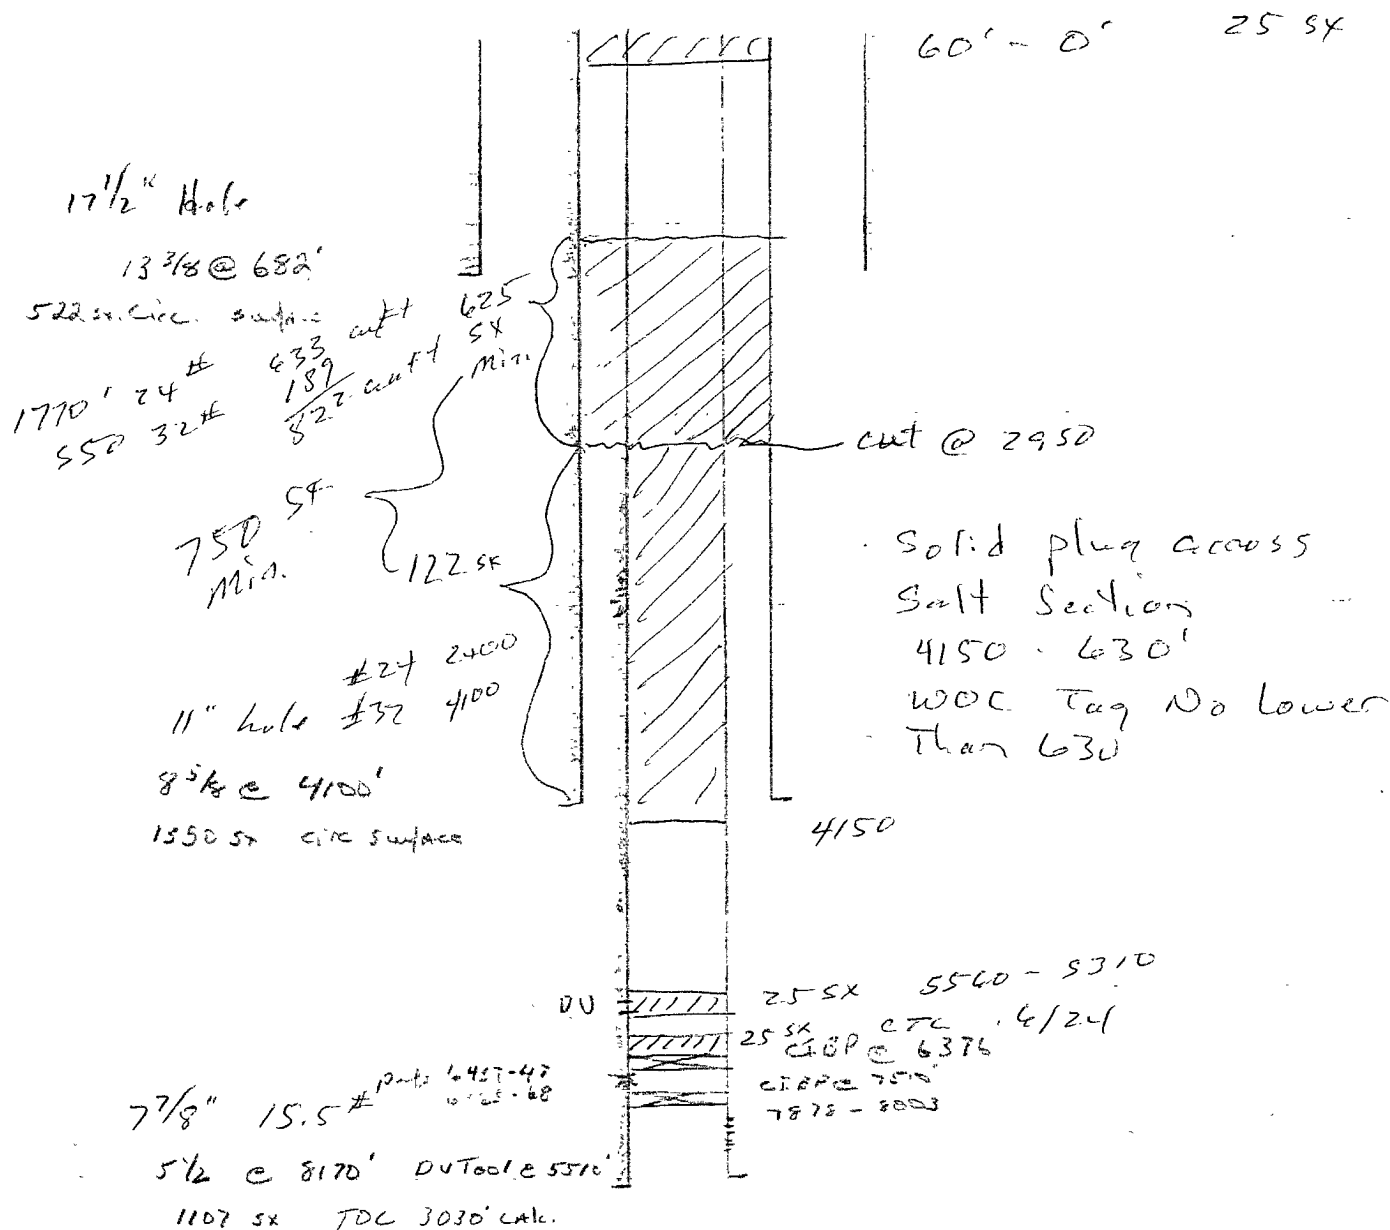 60' - 0' 25 sx
17 1/2" Hole
13 3/8 @ 682'
522 sx. Circ. surface
1770' 24# 633 cuft
550 32# 189
822 cuft
625
sx
Min.
cut @ 2950
750 sx
Min.
122 sx
Solid plug across
Salt Section
4150 - 630'
WOC Tag No Lower
Than 630
#24 2400
11" hole #32 4100
8 5/8 @ 4100'
sx circ surface
4150
DV 25 sx 5560 - 5310
25 sx CTC
CIBP @ 6376
CIBP @
7878 - 8003
7 7/8" 15.5#
5 1/2 @ 8170' DV Tool @ 5510'
1107 sx TOC 3030' CALC.